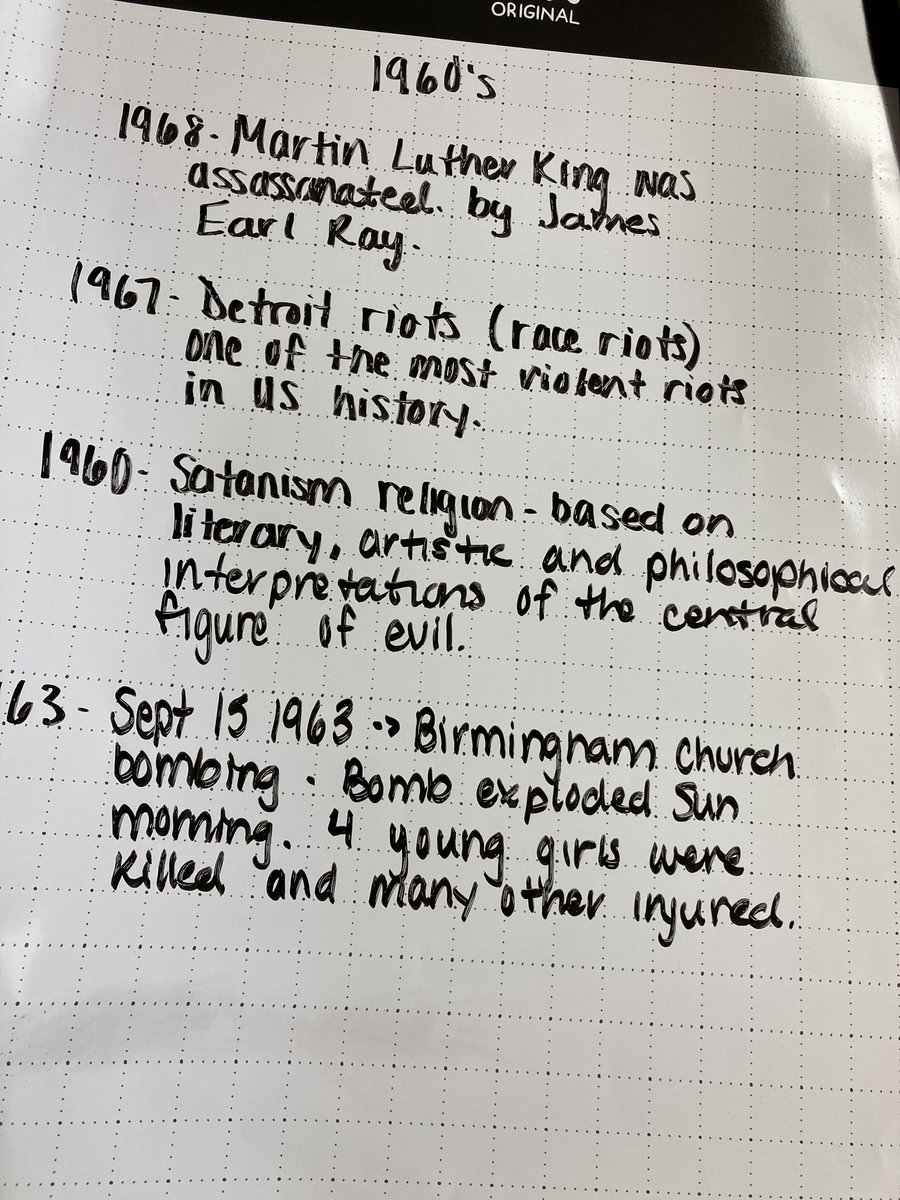 ORIGINAL
1960's
1968- Martin Luther King was
assassanated. by James
Earl Ray.
1967- Detroit riots (race riots)
one of the most violent riots
in US history.
1960- Satanism religion - based on
literary, artistic and philosophical
interpretations of the central
figure of evil.
63- Sept 15 1963 -> Birmingham church
bombing. Bomb exploded Sun
morning. 4 young girls were
killed and many other injured.